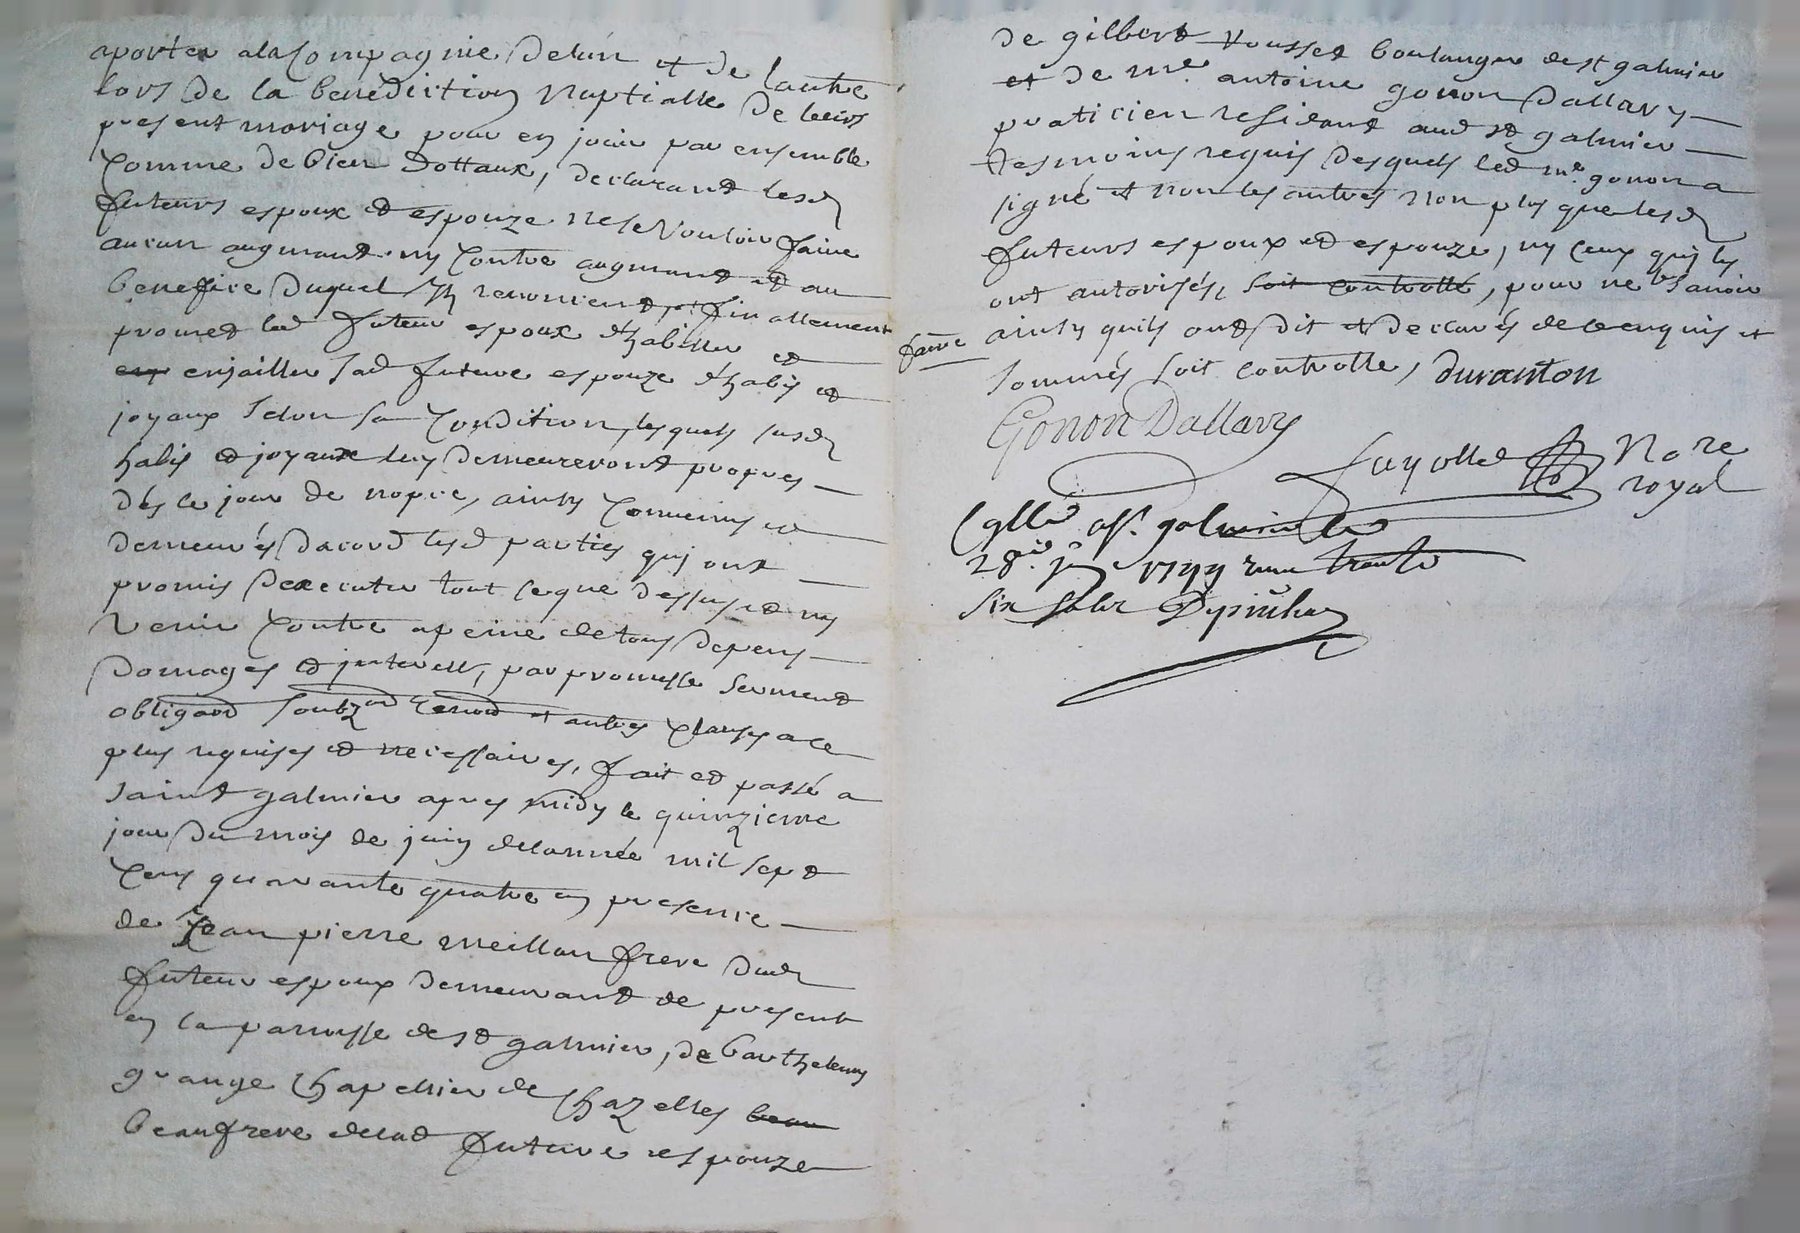 aporter ala Compagnie delun et de lautre
lors de la benediction nuptialle de leurs
present mariage pour en jouir par ensemble
Comme de bien dottaux, declarant lesd
futeurs espoux et espouze ne se vouloir faire
aucun augmant ny Contre augmant et au
benefice duquel ilz renoncent, finallement
promet led futeur espoux d'habiller et
enjailler sad future espouze d'habis et
joyaux selon sa Condition, lesquels susd
habis et joyaux luy demeureront propres
dés le jour de nopce, ainsy Convenus et
demeurés dacord lesd parties quj ont
promis dexecuter tout ce que dessus et ny
venir Contre apeine de tous depens
domages et jnterests, par promesse serment
obligaon soubzon Renoon et autres Clauses a ce
plus requises et necessaires, fait et passé a
saint galmier apres midy le quinzieme
jour du mois de juin delannée mil sept
Cens quarante quatre en presence
de Jean pierre meillan frere dud
futeur espoux demeurant de present
en la parroisse de st galmier, de barthelemy
grange Chapellier de Chazelles beau
beaufrere delad future espouze
de gilbert Rousset boulanger de st galmier
et de me. antoine gonon Dallary
praticien residant aud st galmier
tesmoins requis desquels led me. gonon a
signé et non les autres non plus que lesd
futeurs espoux et espouze, ny ceux quj les
ont autorisés, soit controllé, pour ne le sçavoir
faire ainsy quils ont dit et declarés de ce enquis et
sommés soit controlle, duranton
Gonon Dallary
fayolle Nore
royal
Cglle a st. galmier le
28e. jn 1744 recu trente
six sols